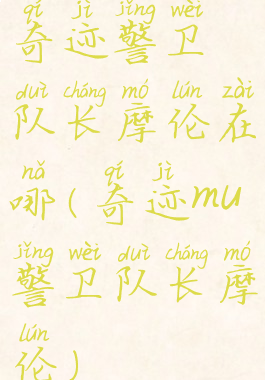 qí jì jǐng wèi
奇迹警卫
duì cháng mó lún zài
队长摩伦在
nǎ qí jì
哪(奇迹mu
jǐng wèi duì cháng mó
警卫队长摩
lún
伦)